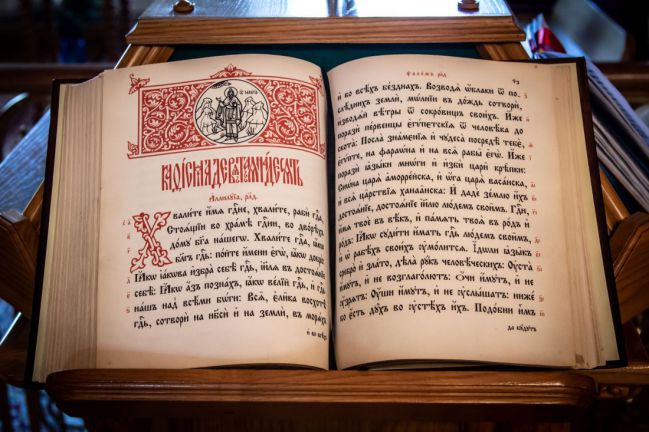 Каѳі́сма девѧтаѧна́десѧть
Аллилꙋ́їа, рл҃д.
Хвали́те и҆́мѧ гдⷭ҇не, хвали́те, рабѝ гдⷭ҇а,
Стоѧ́щїи во хра́мѣ гдⷭ҇ни, во дво́рѣхъ
до́мꙋ бг҃а на́шегѡ. Хвали́те гдⷭ҇а, ꙗ҆́кѡ
бл҃гъ гдⷭ҇ь: по́йте и҆́мени є҆гѡ̀, ꙗ҆́кѡ добро̀:
Ꙗ҆́кѡ і҆а́кѡва и҆збра̀ себѣ̀ гдⷭ҇ь, і҆и҃лѧ въ достоѧ́нїе
себѣ̀. Ꙗ҆́кѡ а҆́зъ позна́хъ, ꙗ҆́кѡ ве́лїй гдⷭ҇ь, и҆ гдⷭ҇ь
на́шъ над̾ всѣ́ми бѡ́ги: Всѧ̑, є҆ли̑ка восхотѣ̀
гдⷭ҇ь, сотворѝ на нб҃сѝ и҆ на землѝ, въ морѧ́хъ
и҆ во всѣ́хъ
Ѱало́мъ рл҃д
и҆ во всѣ́хъ бе́зднахъ. Возводѧ̀ ѡ҆́блаки ѿ по-
слѣ́днихъ землѝ, мѡ́лнїи въ до́ждь сотворѝ,
и҆зводѧ́й вѣ́тры ѿ сокро́вищъ свои́хъ. И҆́же
поразѝ пе́рвенцы є҆гѵ́петскїѧ ѿ человѣ́ка до
скота̀: Посла̀ зна́мєнїѧ и҆ чꙋдеса̀ посредѣ̀ тебє̀,
є҆гѵ́пте, на фараѡ́на и҆ на всѧ̑ рабы̑ є҆гѡ̀. И҆́же
поразѝ ꙗ҆зы́ки мнѡ́ги и҆ и҆збѝ цари̑ крѣ̑пки:
Сиѡ́на царѧ̀ а҆морре́йска, и҆ ѡ҆́га царѧ̀ васа́нска,
и҆ всѧ̑ ца̑рствїѧ ханаа̑нска: И҆ дадѐ зе́млю и҆́хъ
достоѧ́нїе, достоѧ́нїе і҆и҃лю лю́демъ свои̑мъ. Гдⷭ҇и,
и҆́мѧ твоѐ въ вѣ́къ, и҆ па́мѧть твоѧ̀ въ ро́дъ и҆
ро́дъ: Ꙗ҆́кѡ сꙋди́ти и҆́мать гдⷭ҇ь лю́демъ свои̑мъ,
и҆ ѡ҆ рабѣ́хъ свои́хъ ᲂу҆мо́литсѧ. І҆́дѡли ꙗ҆зы́къ
сребро̀ и҆ зла́то, дѣла̀ рꙋ́къ человѣ́ческихъ: Оу҆ста̀
и҆́мꙋтъ, и҆ не возглаго́лютъ: Ѻ҆́чи и҆́мꙋтъ, и҆ не
ᲂу҆́зрѧтъ: Оу҆́шы и҆́мꙋтъ, и҆ не ᲂу҆слы́шатъ: нижѐ
бо є҆́сть дꙋ́хъ во ᲂу҆стѣ́хъ и҆́хъ. Подо́бни и҆̀мъ
да бꙋ́дꙋтъ